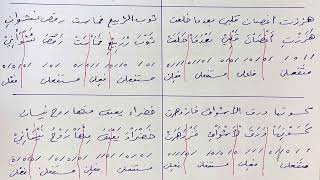 هززت أغصان قلبي بعدما خلعت ثوب الربيع فماست رقص نشوان
هَزَزْتُ أَغْصَانَ قَلْبِيْ بَعْدَمَا خَلَعَتْ ثَوْبَ رْرَبِيْعِ فَمَاسَتْ رَقْصَ نَشْوَانِيْ
متفعلن فاعلن مستفعلن فعلن مستفعلن فعلن مستفعلن فعلن
كسوتها ورق الأشواق فازدهرت خضراء يعبق منها روح نيسان
كَسَوْتِهَا وَرَقَ لْأَشْوَاقِ فَزْدَهَرَتْ خَضْرَاءَ يَعْبَقُ مِنْهَا رَوْحُ نَيْسَانِيْ
متفعلن فعلن مستفعلن فعلن مستفعلن فعلن مستفعلن فعلن